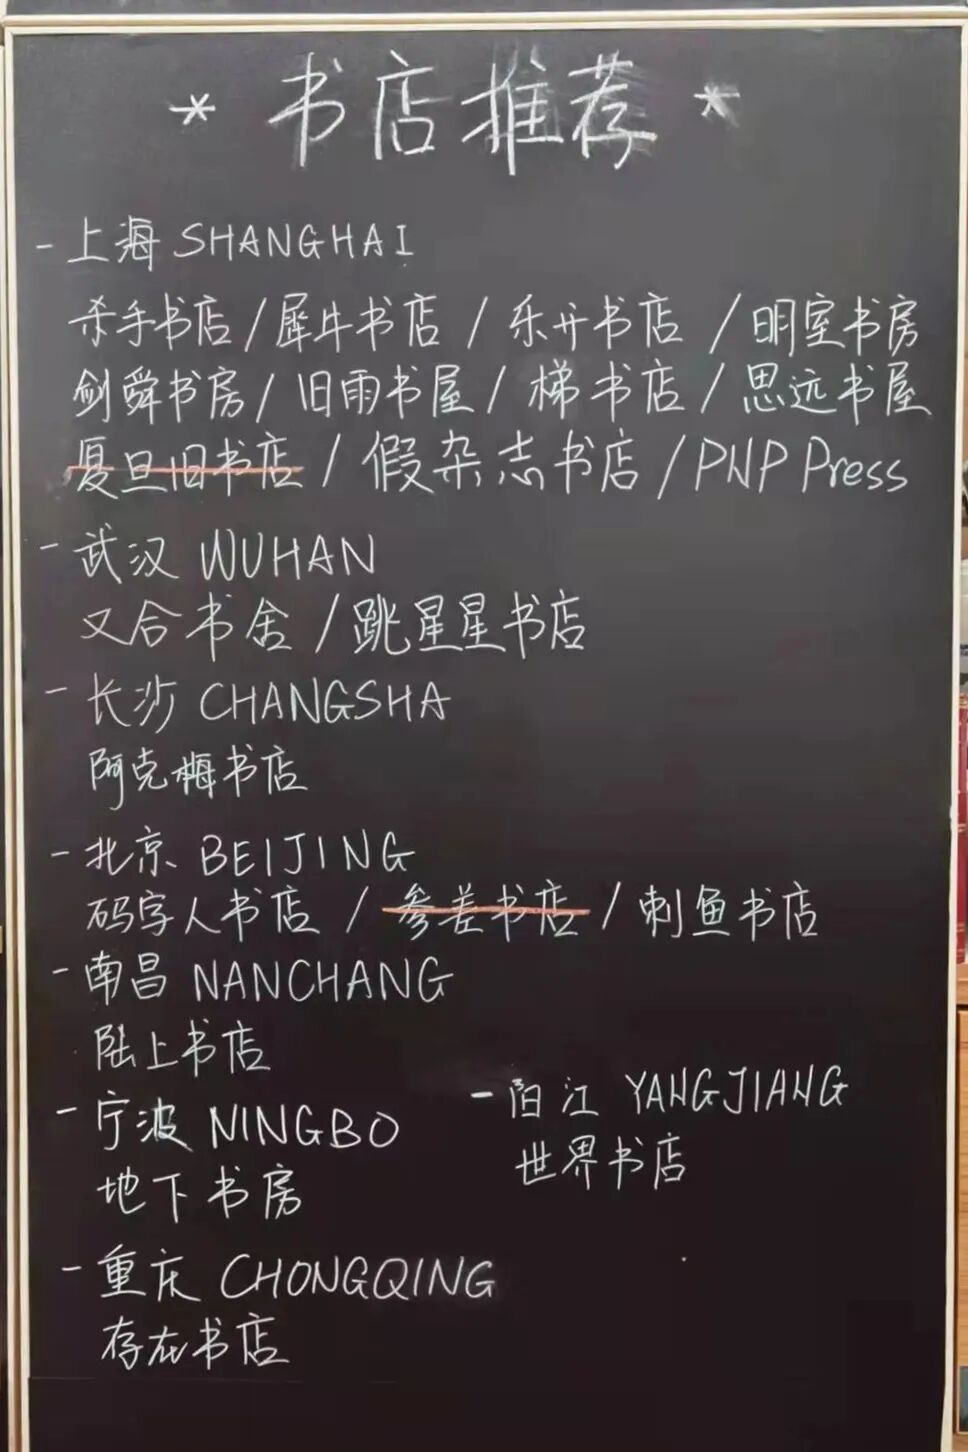 * 书店推荐 *
- 上海 SHANGHAI
杀手书店 / 犀牛书店 / 乐开书店 / 明室书房
剑舜书房 / 旧雨书屋 / 梯书店 / 思远书屋
复旦旧书店 / 假杂志书店 / PNP Press
- 武汉 WUHAN
又合书舍 / 跳星星书店
- 长沙 CHANGSHA
阿克梅书店
- 北京 BEIJING
码字人书店 / 参差书店 / 刺鱼书店
- 南昌 NANCHANG
陆上书店
- 宁波 NINGBO
地下书房
- 阳江 YANGJIANG
世界书店
- 重庆 CHONGQING
存在书店